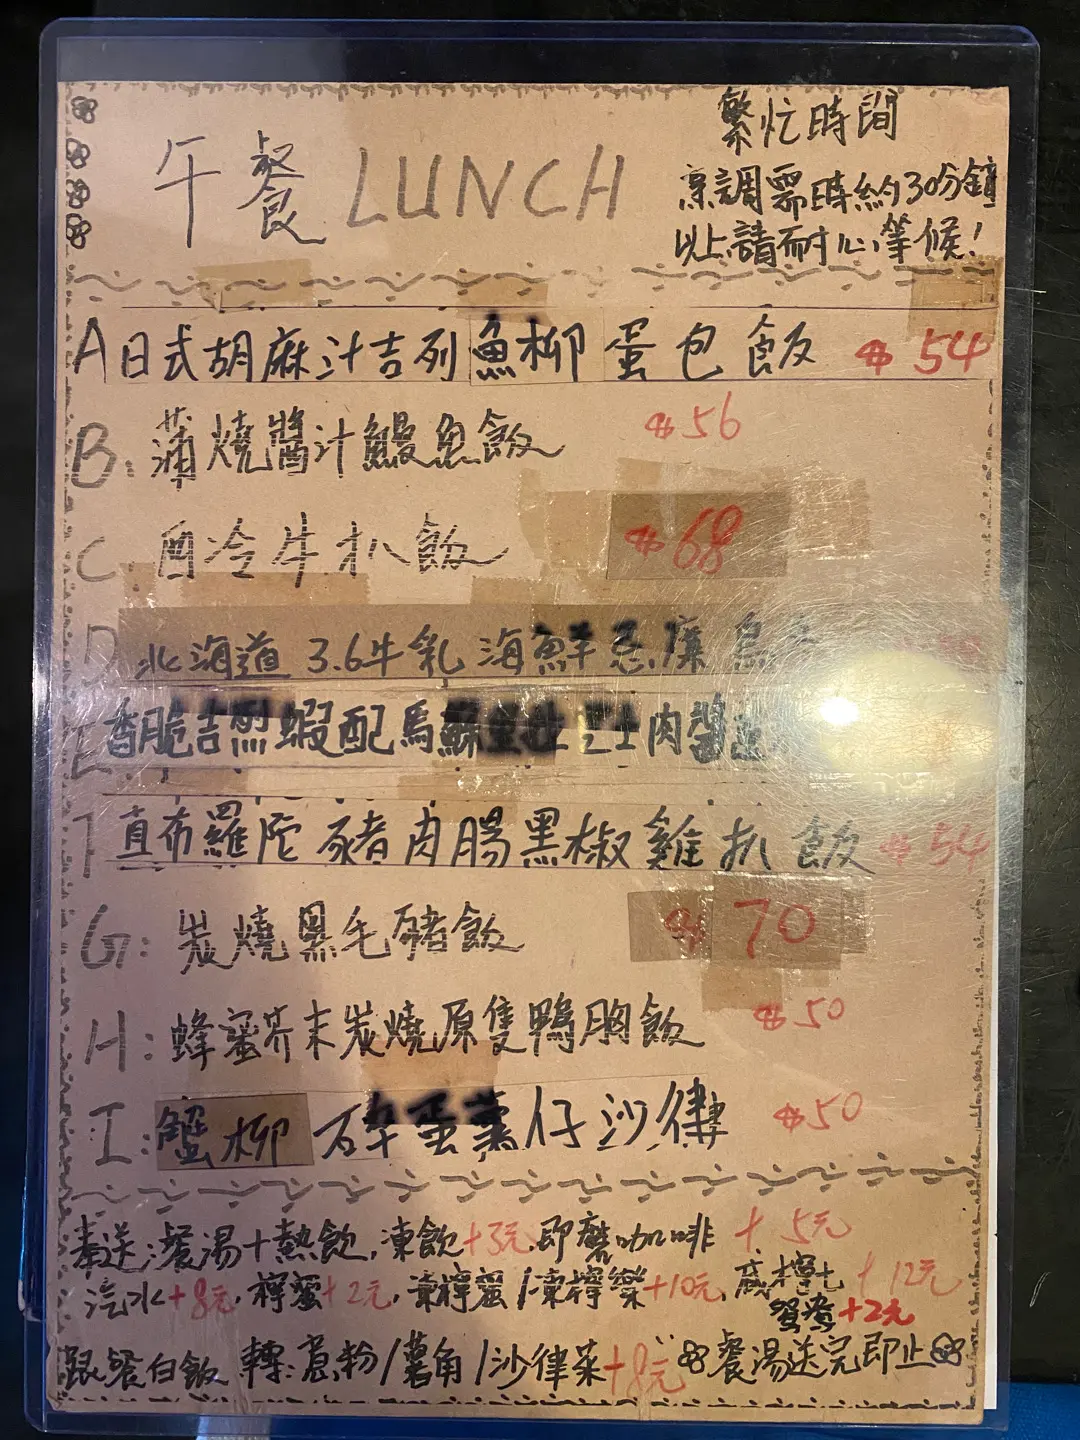 繁忙時間
午餐 LUNCH
烹調需時約30分鐘
以上,請耐心等候!
A 日式胡麻汁吉列魚柳蛋包飯 $54
B: 蒲燒醬汁鰻魚飯 $56
C: 西冷牛扒飯 $68
D 北海道3.6牛乳海鮮忌廉烏冬
E 香脆吉烈蝦配馬蘇里拉芝士肉醬
直布羅陀豬肉腸黑椒雞扒飯 $54
G: 炭燒黑毛豬飯 $70
H: 蜂蜜芥末炭燒原隻鴨胸飯 $50
I: 蟹柳碎蛋薯仔沙律 $50
奉送:餐湯+熱飲,凍飲+3元,即磨咖啡+5元
汽水+8元,檸蜜+2元,凍檸蜜/凍檸樂+10元,咸檸七+12元
鴛鴦+2元
跟餐白飯 轉:意粉/薯角/沙律菜+8元 餐湯送完即止